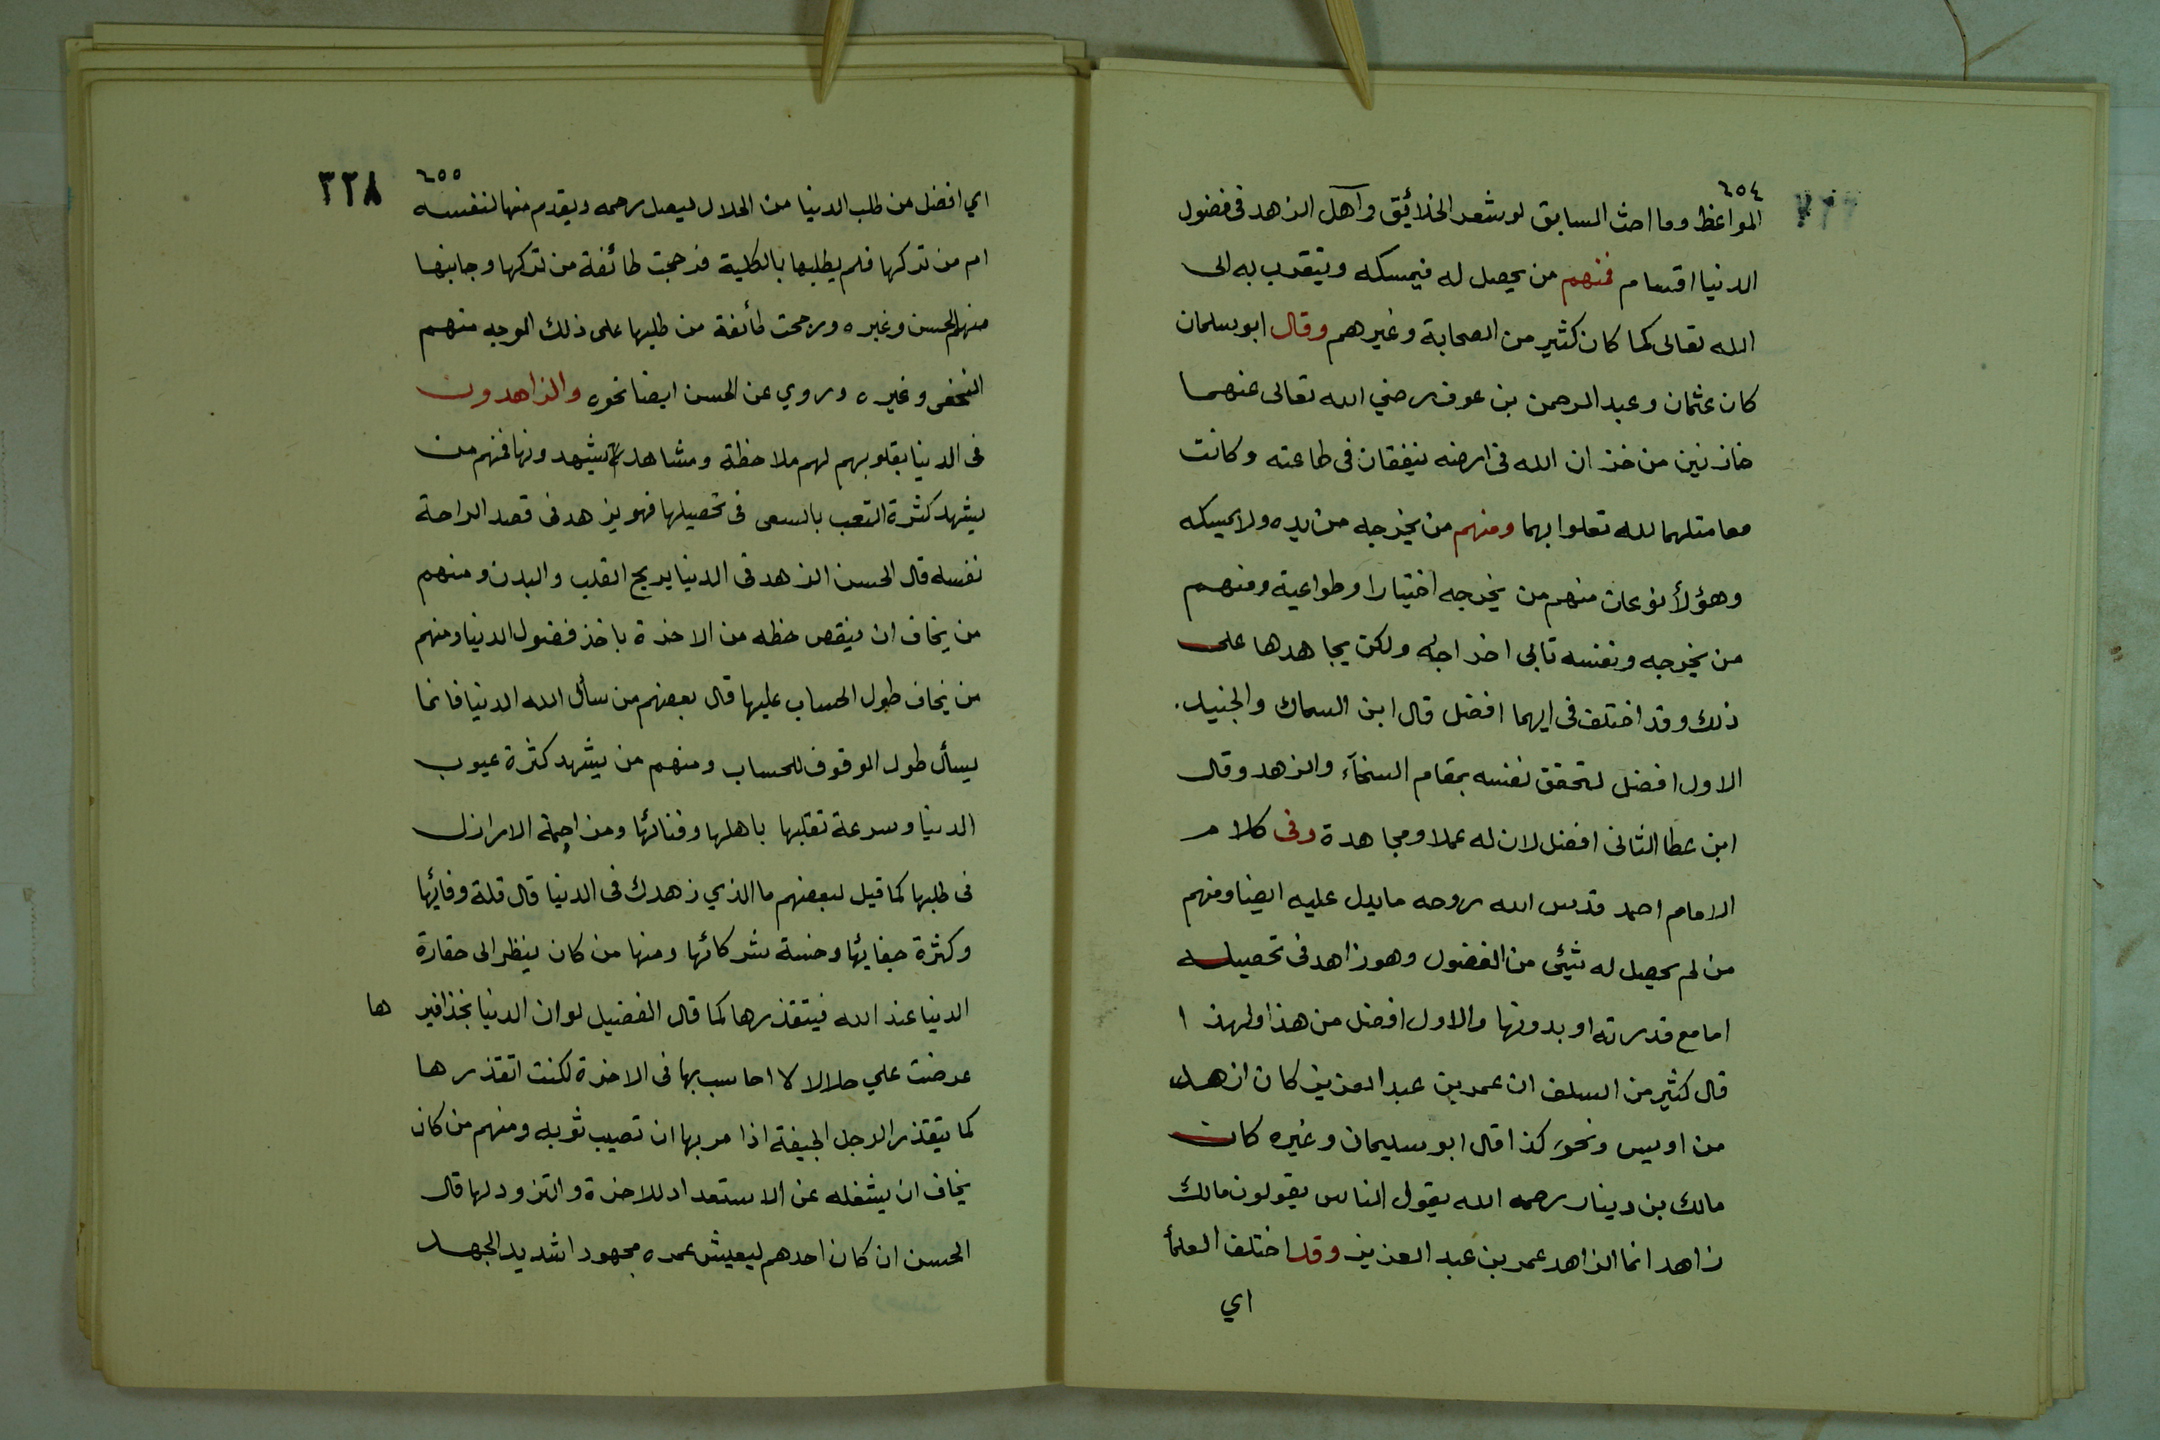 ٦٥٤
المواعظ وما احث السابق لو شعر الخلائق وآهل الزهد فى فضول
الدنيا اقسام فمنهم من يحصل له فيمسكه ويتقرب به الى
الله تعالى كما كان كثير من الصحابة وغيرهم وقال ابو سلمان
كان عثمان وعبد الرحمن بن عوف رضي الله تعالى عنهما
خازنين من خزان الله فى ارضه ينفقان فى طاعته وكانت
معاملتهما لله تعلوا بهما ومنهم من يخرجه من يده ولا يمسكه
وهؤلأ نوعان منهم من يخرجه اختيارا وطواعية ومنهم
من يخرجه ونفسه تابى اخراجه ولكن يجاهدها على
ذلك وقد اختلف فى ايهما افضل قال ابن السماك والجنيد
الاول افضل لتحقق نفسه بمقام السخآء والزهد وقال
ابن عطا الثانى افضل لان له عملا ومجاهدة وفى كلام
الامام احمد قدس الله روحه ما يدل عليه ايضا ومنهم
من لم يحصل له شيئ من الفضول وهو زاهد فى تحصيله
اما مع قدرته او بدونها والاول افضل من هذا ولهذا
قال كثير من السلف ان عمر بن عبد العزيز كان ازهد
من اويس ونحوه كذا قال ابو سليمان وغيره كان
مالك بن دينار رحمه الله يقول الناس يقولون مالك
زاهد انما الزاهد عمر بن عبد العزيز وقد اختلف العلمأ
اي
٦٥٥
٣٢٨
اي افضل من طلب الدنيا من الحلال ليصل رحمه ويقدم منها لنفسه
ام من تركها فلم يطلبها بالكلية فرجحت طائفة من تركها وجانبها
منهم الحسن وغيره ورجحت طائفة من طلبها على ذلك الوجه منهم
النخعى وغيره وروي عن الحسن ايضا نحوه والزاهدون
فى الدنيا بقلوبهم لهم ملاحظة ومشاهدة يشهدونها فمنهم من
يشهد كثرة التعب بالسعى فى تحصيلها فهو يزهد فى قصد الراحة
نفسه قال الحسن الزهد فى الدنيا يريح القلب والبدن ومنهم
من يخاف ان ينقص حظه من الاخرة باخذ فضول الدنيا ومنهم
من يخاف طول الحساب عليها قال بعضهم من سأل الله الدنيا فانما
يسأل طول الوقوف للحساب ومنهم من يشهد كثرة عيوب
الدنيا وسرعة تقلبها باهلها وفنائها ومزاحمة الاراذل
فى طلبها كما قيل لبعضهم ما الذي زهدك فى الدنيا قال قلة وفائها
وكثرة جفايها وخسة شركائها ومنها من كان ينظر الى حقارة
الدنيا عند الله فيتقذرها كما قال الفضيل لو ان الدنيا بحذافير ها
عرضت علي حلالا لا احاسب بها فى الاخرة لكنت اتقذرها
كما يتقذر الرجل الجيفة اذا مر بها ان تصيب ثوبه ومنهم من كان
يخاف ان يشغله عن الاستعداد للاخرة والتزود لها قال
الحسن ان كان احدهم ليعيش عمره مجهودا شديد الجهد